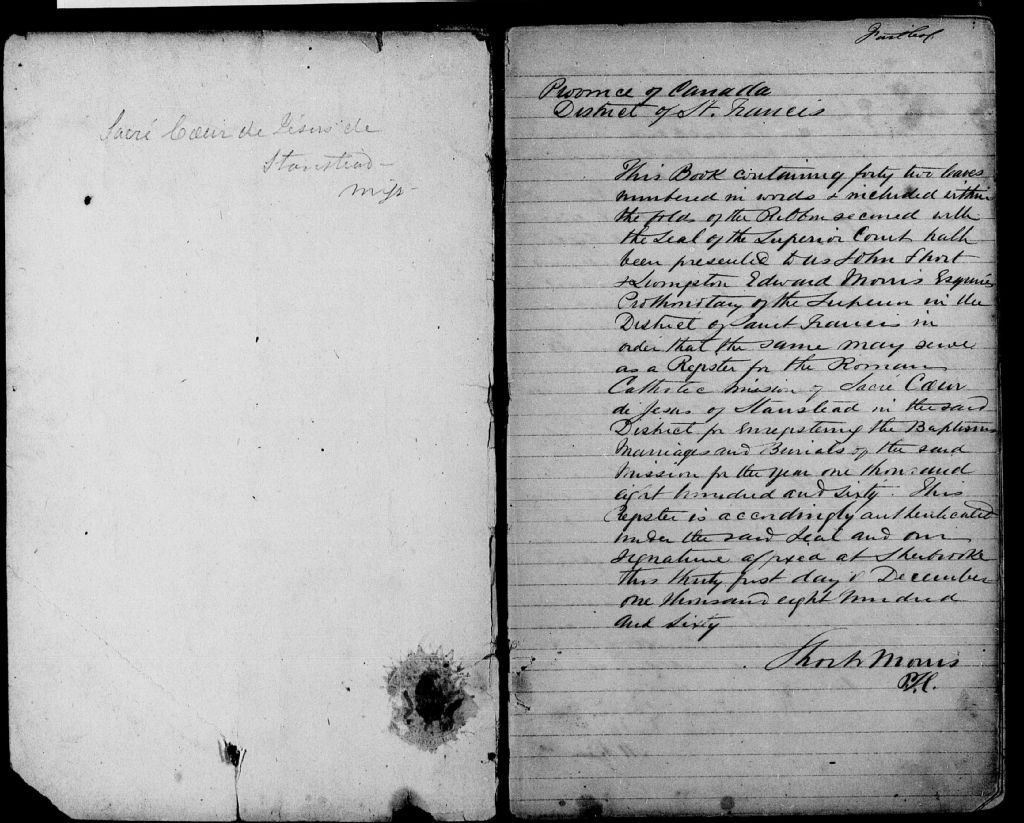 Sacré Cœur de Jésus de
Stanstead
miss
First leaf
Province of Canada
District of St. Francis
This Book containing forty two leaves
numbered in words & included within
the folds of the Ribbon secured with
the Seal of the Superior Court hath
been presented to us John Short
& Livingston Edward Morris Esquire
Prothonotary of the Superior in the
District of Saint Francis in
order that the same may serve
as a Register for the Roman
Catholic mission of Sacre Cœur
de Jesus of Stanstead in the said
District for Enregistering the Baptisms
Marriages and Burials of the said
Mission for the year one thousand
eight hundred and sixty. This
Register is accordingly authenticated
under the said Seal and our
signature affixed at Sherbrooke
this thirty first day of December
one thousand eight hundred
and sixty
Short & Morris